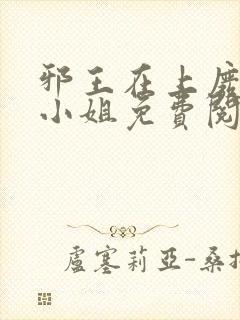 邪王在上廢
小姐免費閱
盧塞莉亞-桑